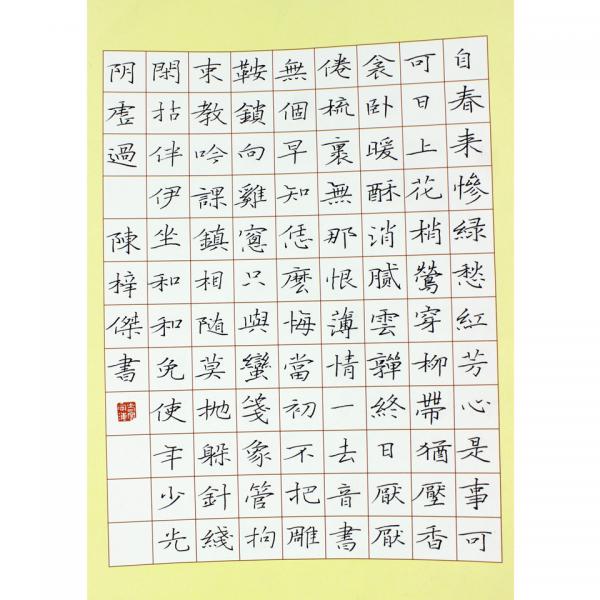 自春来慘綠愁紅芳心是事可
可日上花梢鶯穿柳帶猶壓香
衾卧暖酥消膩雲嚲終日厭厭
倦梳裹無那恨薄情一去音書
無個早知恁麼悔當初不把雕
鞍鎖向雞窻只與蠻箋象管拘
束教吟課鎮相随莫抛躲針綫
閑拈伴伊坐和和免使年少光
阴虛過 陳梓傑書